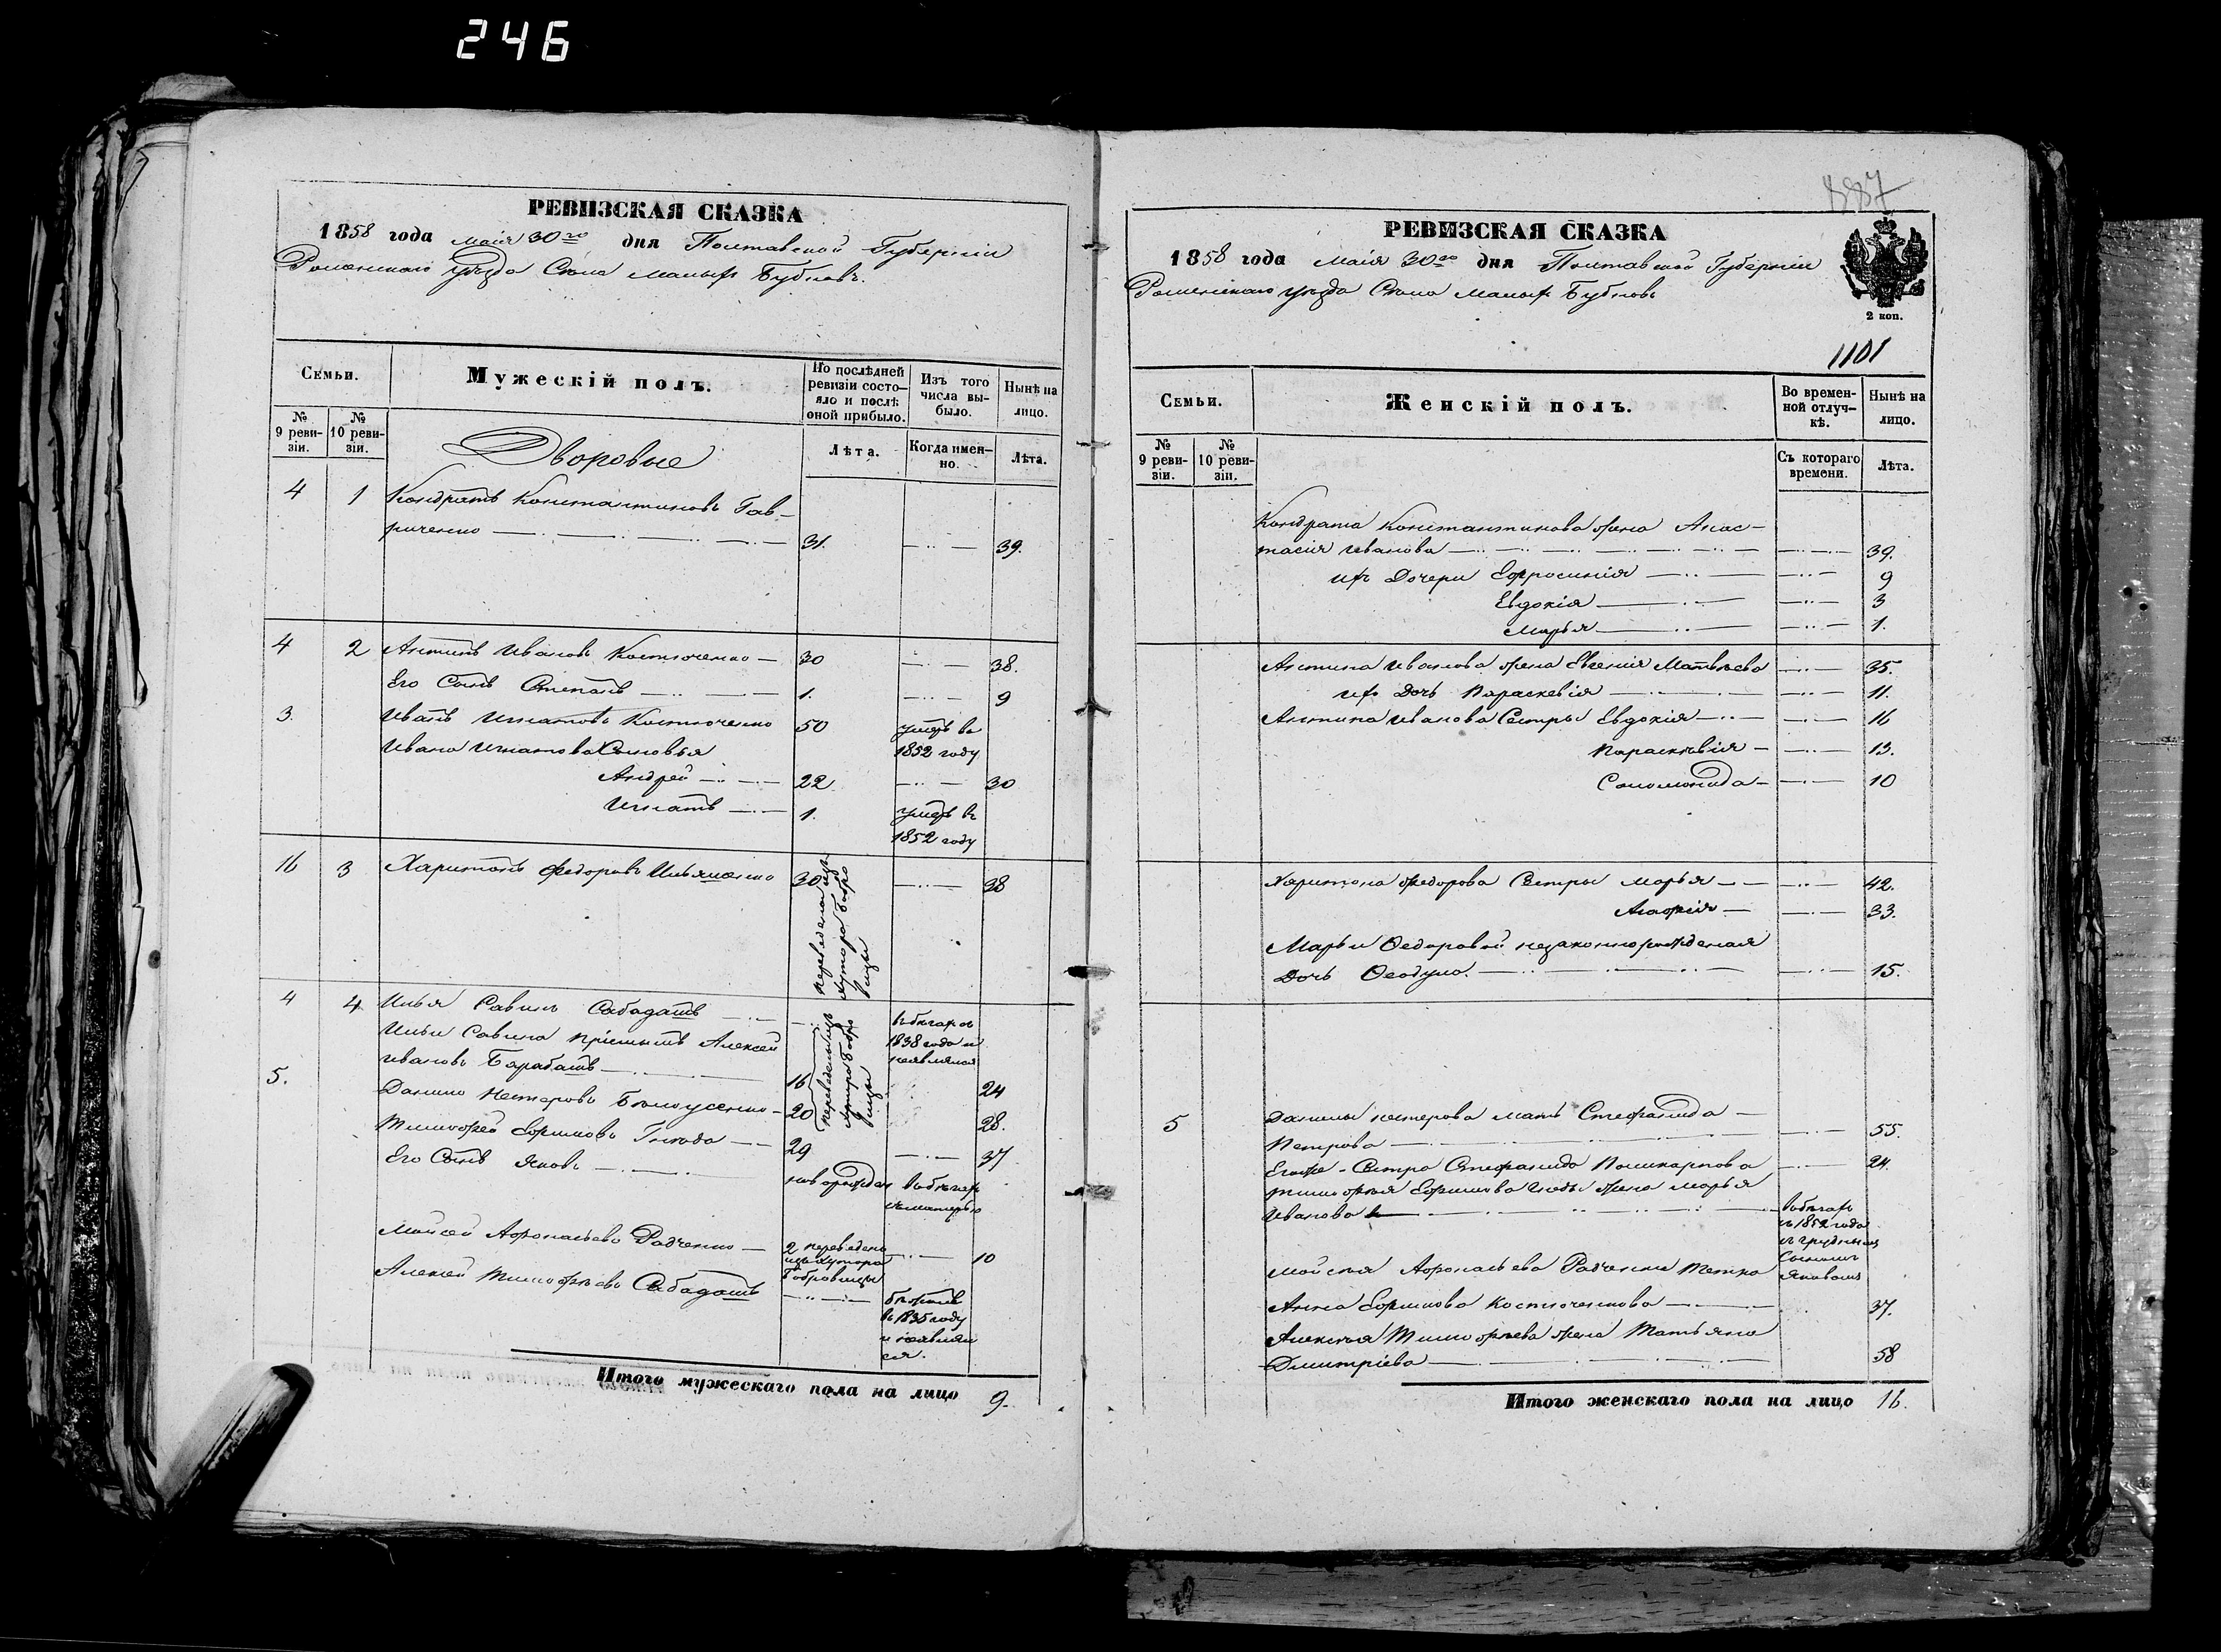 246
РЕВИЗСКАЯ СКАЗКА
1858 года Маія 30го дня Полтавской Губерніи
Роменскаго уѣзда Села Малыхъ Бубновъ.
Семьи.
Мужескій полъ.
По послѣдней ревизіи состо-яло и послѣ оной прибыло.
Изъ того числа вы-было.
Нынѣ на лицо.
№ 9 реви-зіи.
№ 10 реви-зіи.
Дворовые
Лѣта.
Когда имен-но.
Лѣта.
4 1 Кондратъ Константиновъ Гав-
риченко 31. 39.
4 2 Антипъ Ивановъ Костюченко 30 38.
Его Сынъ Степанъ 1. 9
3. Иванъ Игнатовъ Костюченко 50 умеръ въ
1852 году
Ивана Игнатова Сыновья
Андрей 22 30
Игнатъ 1. умеръ въ
1852 году
16 3 Харитонъ Федоровъ Ильяшенко 30 38
переведена изъ
хутора Бобро
вицы
4 4 Илья Савинъ Сабадашъ въ бѣгахъ съ
1838 года и
неявлялся
Ильи Савина пріемышъ Алексей
Ивановъ Барабашъ 16 24
5. Данило Нестеровъ Бѣлоусенко 20 28.
переведены изъ
хутора Бобро
вицы
Тимофей Ефимовъ Гнида 29 37
Его Сынъ Яковъ новорожден въ бѣгахъ
съ матерью
Мойсей Афонасьевъ Радченко 2 переведенъ 10
изъ хутора
Бобровицы
Алексей Тимофѣевъ Сабадашъ бѣжалъ
въ 1835 году
и неявлял
ся.
Итого мужескаго пола на лицо 9.
887
РЕВИЗСКАЯ СКАЗКА
1858 года Маія 30го дня Полтавской Губерніи
Роменскаго уѣзда Села Малыхъ Бубновъ
2 коп.
1101
Семьи.
Женскій полъ.
Во времен-ной отлуч-кѣ.
Нынѣ на лицо.
№ 9 реви-зіи.
№ 10 реви-зіи.
Съ котораго времени.
Лѣта.
Кондрата Константинова жена Анас-
тасія Иванова 39.
ихъ Дочери Ефросинія 9
Евдокія 3
Марья 1.
Антипа Иванова жена Евгенія Матвѣева 35.
ихъ Дочь Параскевія 11.
Антипа Иванова Сестры Евдокія 16
Параскѣвія 13.
Соломонида 10
Харитона Федорова Сестры Марья 42.
Агафія 33.
Марьи Федоровой незаконнорожденная
Дочь Феодула. 15.
5 Данилы Нестерова мать Стефанида
Петрова 55.
Егоже Сестра Стефанида Поликарпова 24.
Тимофея Ефимова Гниды жена Марья
Иванова въ бѣгахъ
съ 1852 года
съ груднымъ
Сыномъ
Яковомъ
Мойсея Афонасьева Радченка Тетка
Анна Ефимова Костюченкова 37.
Алексѣя Тимофѣева жена Татьяна
Дмитріева 58
Итого женскаго пола на лицо 16.